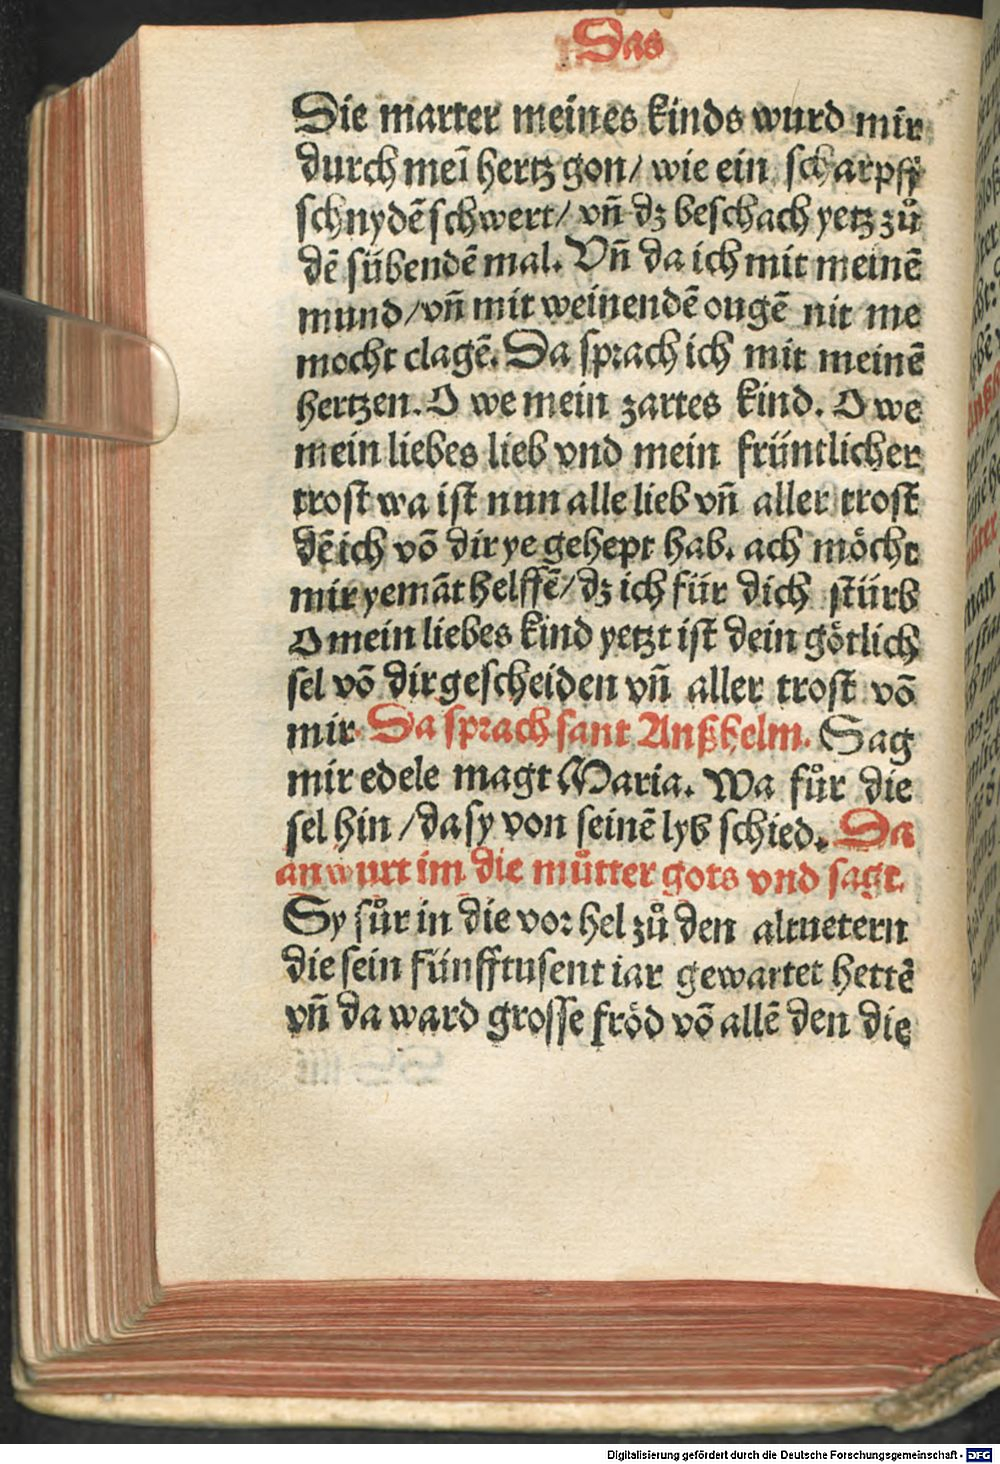 Das
Die marter meines kinds wurd mir
durch meī hertz gon/ wie ein scharpff
schnydē schwert/ vñ dz beschach yetz zů
dē sübendē mal. Vñ da ich mit meinē
mund/vñ mit weinendē ougē nit me
mocht clagē. Da sprach ich mit meinē
hertzen. O we mein zartes kind. O we
mein liebes lieb vnd mein früntlicher
trost wa ist nun alle lieb vñ aller trost
dē ich võ dir ye gehept hab. ach möcht
mir yemãt helffē/dz ich für dich stürb
O mein liebes kind yetzt ist dein götlich
sel võ dir gescheiden vñ aller trost võ
mir. Da sprach sant Anßhelm. Sag
mir edele magt Maria. Wa fůr die
sel hin/da sy von seinē lyb schied. Da
anwurt im die můtter gots vnd sagt.
Sy fůr in die vor hel zů den altuetern
die sein fünfftusent iar gewartet hettē
vñ da ward grosse fröd võ allē den die
Digitalisierung gefördert durch die Deutsche Forschungsgemeinschaft - DFG